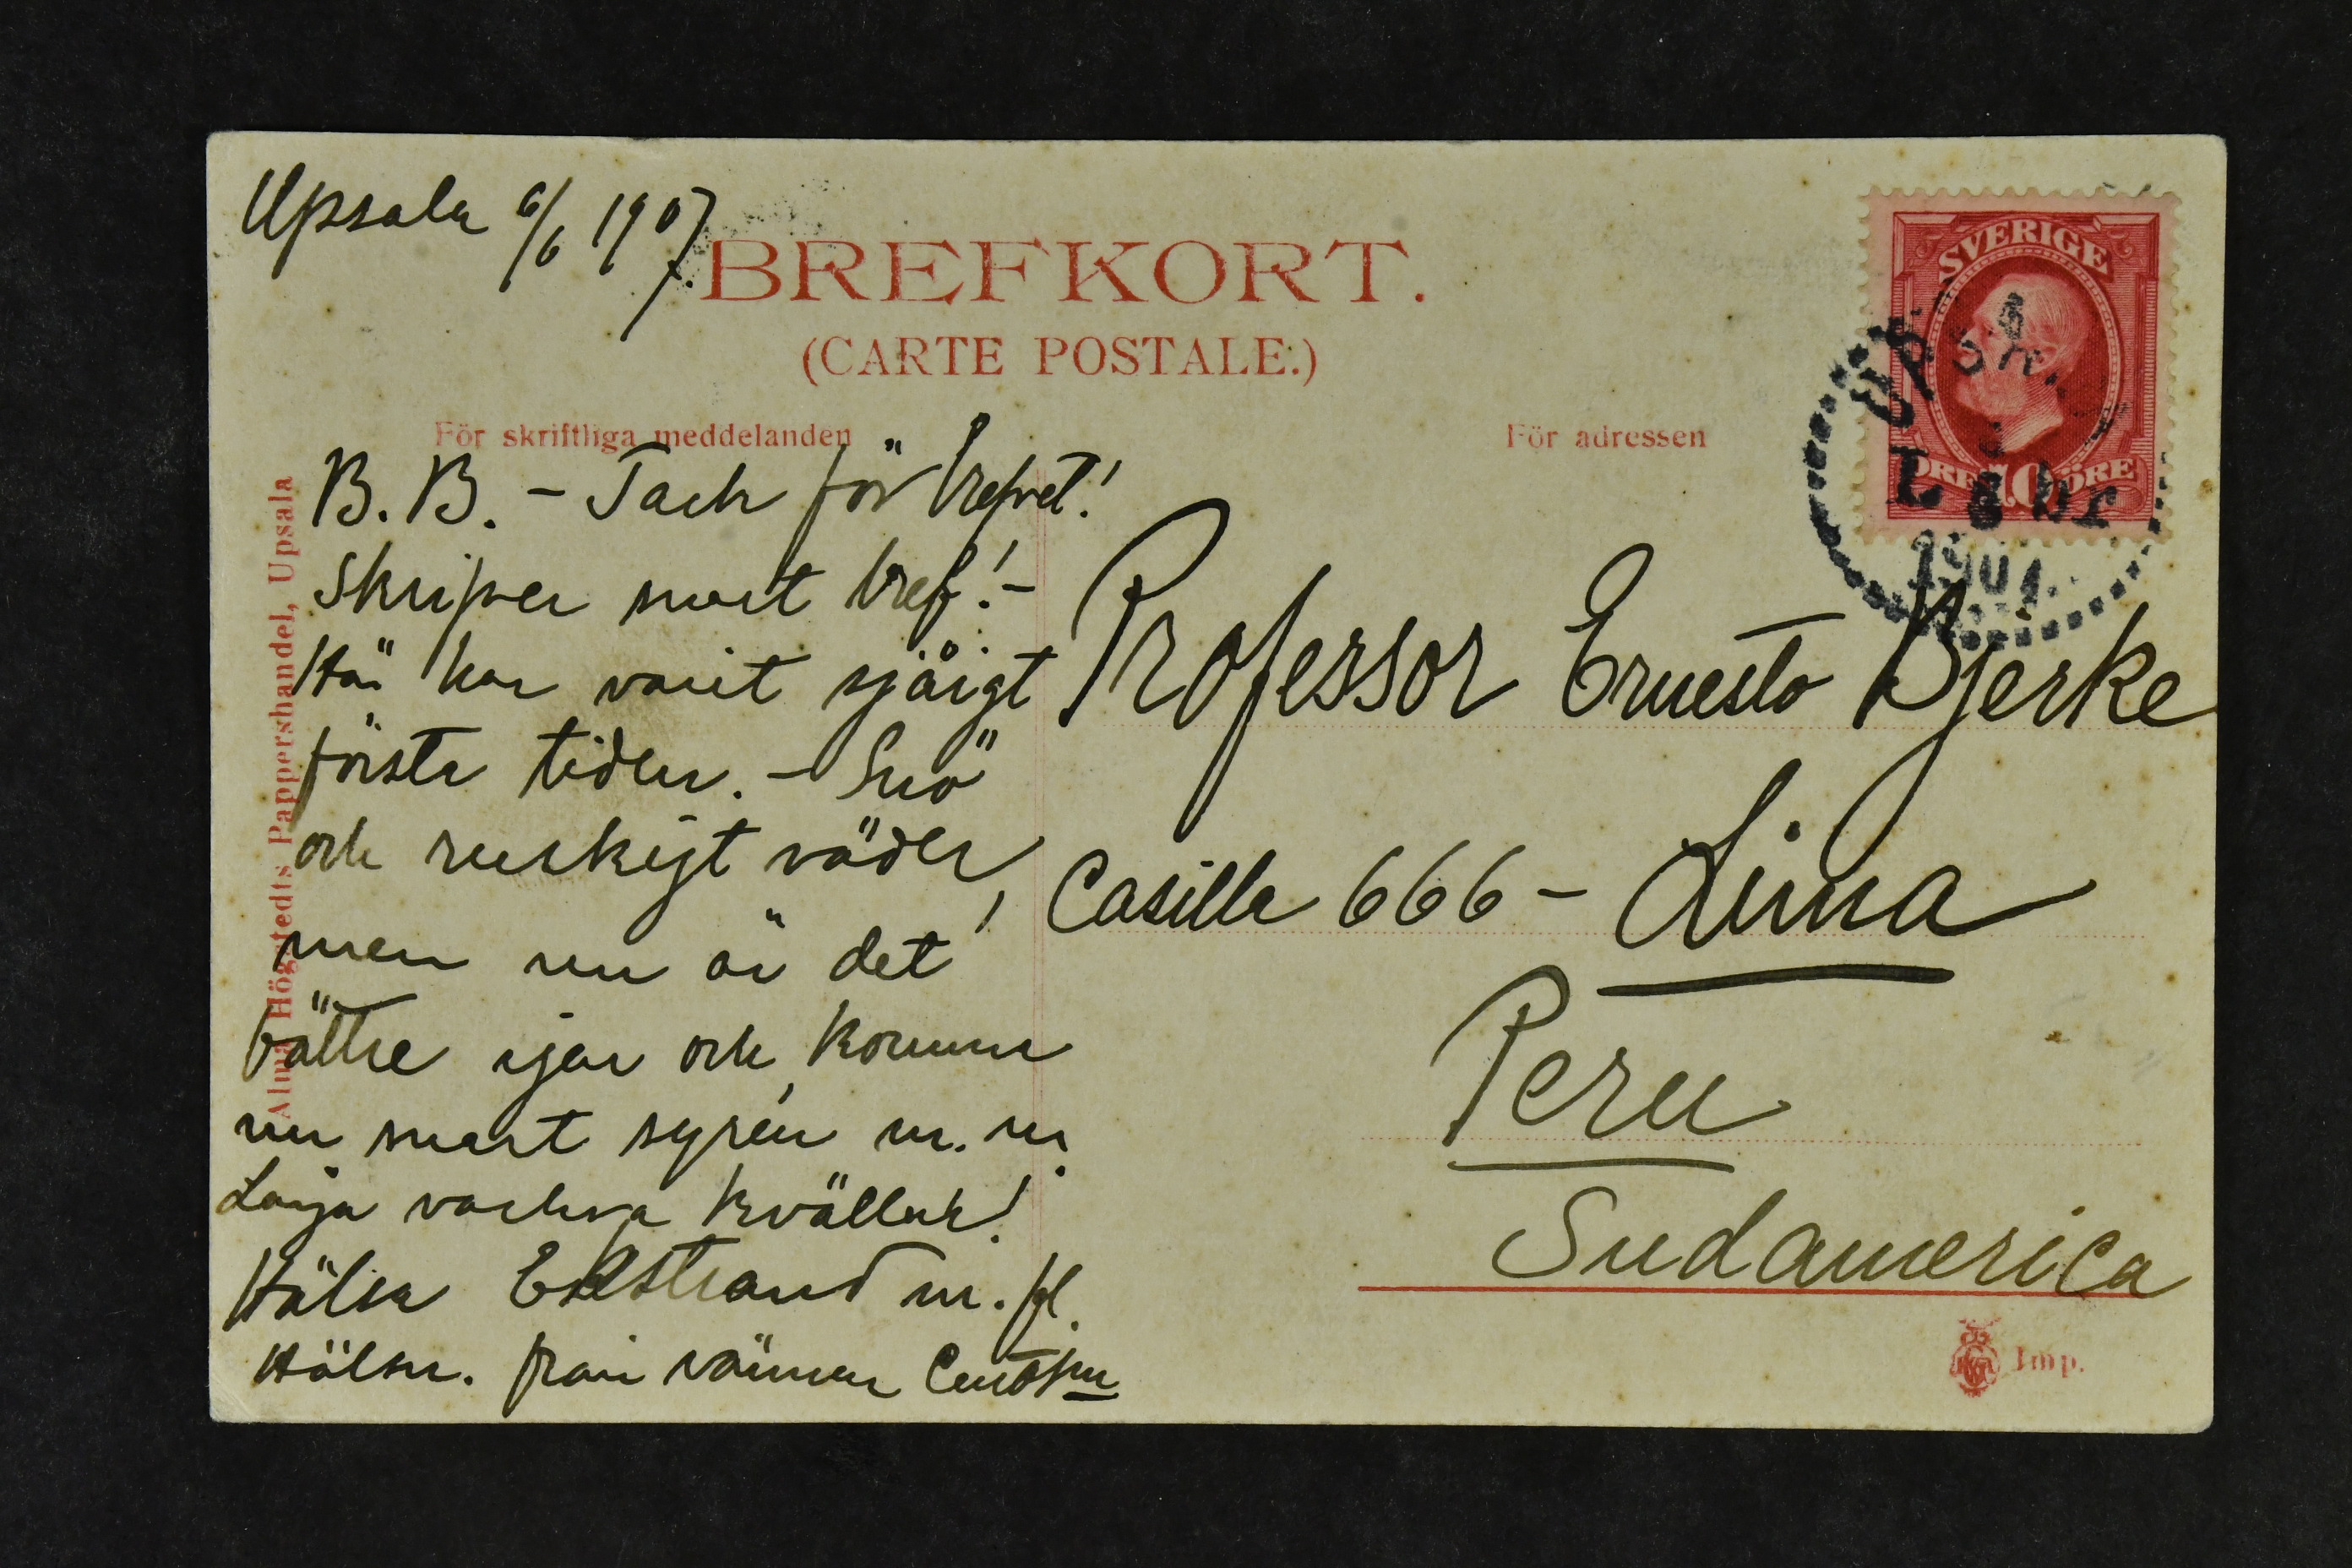 Upsala 6/6 1907.
BREFKORT.
(CARTE POSTALE.)
För skriftliga meddelanden
För adressen
SVERIGE
ÖRE 10 ÖRE
UPSALA
6 6
1907
Alma Högstedts Pappershandel, Upsala
B. B. - Tack för brefvet!
Skrifver snart bref! -
Här har varit sjåigt
första tiden. - Snö
och ruskigt väder,
men nu är det
bättre igen och kommer
nu snart syrén m. m.
Långa vackra kvällar!
Hälsa Ekstrand m. fl.
Hälsn. från vännen
Professor Ernesto Bjerke
Casilla 666 - Lima
Peru
Sudamerica
Imp.